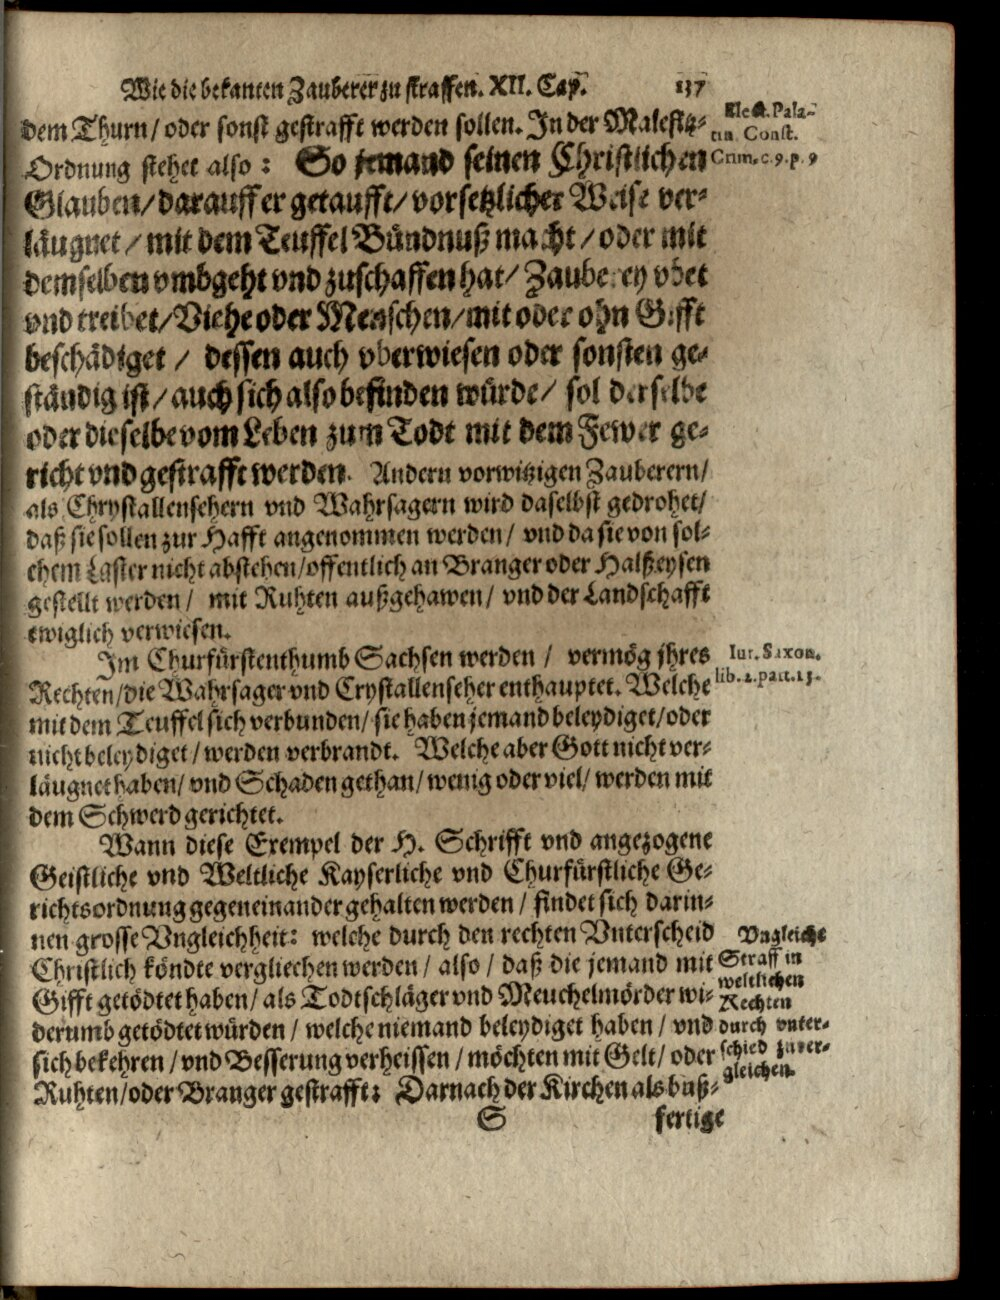 Wie die bekanten Zauberer zu straffen. XII. Cap. 137
dem Thurn/ oder sonst gestrafft werden sollen. In der Malefitz-
Elect. Pala-
tin. Const.
Ordnung stehet also: So jemand seinen Christlichen
Crim. c. 9. p. 9
Glauben/ darauff er getaufft/ vorsetzlicher Weise ver-
läugnet/ mit dem Teuffel Bündnuß macht/ oder mit
demselben vmbgeht vnd zuschaffen hat/ Zauberey vbet
vnd treibet/ Viehe oder Menschen/ mit oder ohn Gifft
beschädiget/ dessen auch vberwiesen oder sonsten ge-
ständig ist/ auch sich also befinden würde/ sol derselbe
oder dieselbe vom Leben zum Todt mit dem Fewer ge-
richt vnd gestrafft werden. Andern vorwitzigen Zauberern/
als Chrystallensehern vnd Wahrsagern wird daselbst gedrohet/
daß sie sollen zur Hafft angenommen werden/ vnd da sie von sol-
chem Laster nicht abstehen/ offentlich an Branger oder Halßeysen
gestellt werden/ mit Ruhten außgehawen/ vnd der Landschafft
ewiglich verwiesen.
Im Churfürstenthumb Sachsen werden/ vermög ihres
Iur. Saxon.
Rechten/ die Wahrsager vnd Crystallenseher enthauptet. Welche
lib. 2. part. 13.
mit dem Teuffel sich verbunden/ sie haben jemand beleydiget/ oder
nicht beleydiget/ werden verbrandt. Welche aber Gott nicht ver-
läugnet haben/ vnd Schaden gethan/ wenig oder viel/ werden mit
dem Schwerd gerichtet.
Wann diese Exempel der H. Schrifft vnd angezogene
Geistliche vnd Weltliche Kayserliche vnd Churfürstliche Ge-
richtsordnung gegeneinander gehalten werden/ findet sich darin-
nen grosse Vngleichheit: welche durch den rechten Vnterscheid
Christlich köndte vergliechen werden/ also/ daß die jemand mit
Gifft getödtet haben/ als Todtschläger vnd Meuchelmörder wi-
derumb getödtet würden/ welche niemand beleydiget haben/ vnd
sich bekehren/ vnd Besserung verheissen/ möchten mit Gelt/ oder
Ruhten/ oder Branger gestrafft: Darnach der Kirchen als buß-
Vngleiche
Straff in
weltlichen
Rechten
durch vnter-
schied zuver-
gleichen.
S fertige